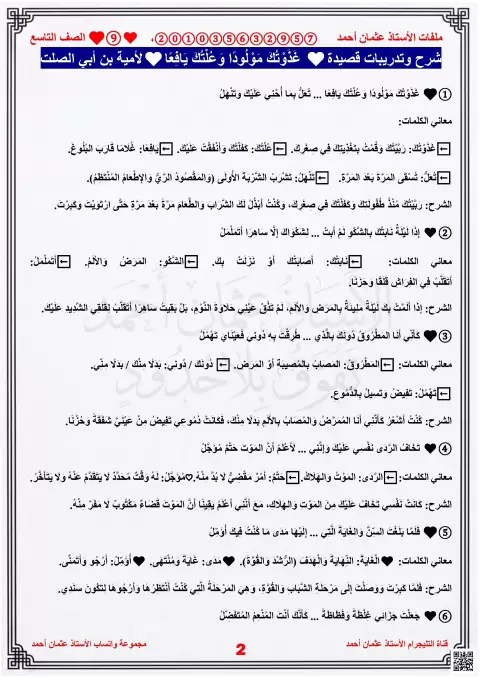 ملفات الأستاذ عثمان أحمد +201035632957 ♥ ⑨ ♥ الصف التاسع
شرح وتدريبات قصيدة ♥ غَذَوْتُكَ مَوْلُودًا وَعُلْتُكَ يَافِعًا ♥ لأمية بن أبي الصلت
① ♥ غَذَوْتُكَ مَوْلُودًا وَعُلْتُكَ يَافِعًا ... تُعَلُّ بِمَا أَحْنِي عَلَيْكَ وَتَنْهَلُ
معاني الكلمات:
← غَذَوْتُكَ: رَبَّيْتُكَ وَقُمْتُ بِتَغْذِيَتِكَ فِي صِغَرِكَ. ← عُلْتُكَ: كَفَلْتُكَ وَأَنْفَقْتُ عَلَيْكَ. ← يَافِعًا: غُلَامًا قَارَبَ البُلُوغَ.
← تُعَلُّ: تُسْقَى المَرَّةَ بَعْدَ المَرَّةِ. ← تَنْهَلُ: تَشْرَبُ الشَّرْبَةَ الأُولَى (وَالمَقْصُودُ الرَّيُّ وَالإِطْعَامُ المُنْتَظِمُ).
الشرح: رَبَّيْتُكَ مُنْذُ طُفُولَتِكَ وَكَفَلْتُكَ فِي صِغَرِكَ، وَكُنْتُ أَبْذُلُ لَكَ الشَّرَابَ وَالطَّعَامَ مَرَّةً بَعْدَ مَرَّةٍ حَتَّى ارْتَوَيْتَ وَكَبِرْتَ.
② ♥ إِذَا لَيْلَةٌ نَابَتْكَ بِالشَّكْوِ لَمْ أَبِتْ ... لِشَكْوَاكَ إِلَّا سَاهِرًا أَتَمَلْمَلُ
معاني الكلمات: ← نَابَتْكَ: أَصَابَتْكَ أَوْ نَزَلَتْ بِكَ. ← الشَّكْوُ: المَرَضُ وَالأَلَمُ. ← أَتَمَلْمَلُ:
أَتَقَلَّبُ فِي الفِرَاشِ قَلَقًا وَحُزْنًا.
الشرح: إِذَا أَلَمَّتْ بِكَ لَيْلَةٌ مَلِيئَةٌ بِالمَرَضِ وَالأَلَمِ، لَمْ تَذُقْ عَيْنِي حَلَاوَةَ النَّوْمِ، بَلْ بَقِيتُ سَاهِرًا أَتَقَلَّبُ لِقَلَقِي الشَّدِيدِ عَلَيْكَ.
③ ♥ كَأَنِّي أَنَا المَطْرُوقُ دُونَكَ بِالَّذِي ... طُرِقْتَ بِهِ دُونِي فَعَيْنَايَ تَهْمُلُ
معاني الكلمات: ← المَطْرُوقُ: المُصَابُ بِالمُصِيبَةِ أَوْ المَرَضِ. ← دُونَكَ / دُونِي: بَدَلًا مِنْكَ / بَدَلًا مِنِّي.
← تَهْمُلُ: تَفِيضُ وَتَسِيلُ بِالدُّمُوعِ.
الشرح: كُنْتُ أَشْعُرُ كَأَنَّنِي أَنَا المُمَرَّضُ وَالمُصَابُ بِالأَلَمِ بَدَلًا مِنْكَ، فَكَانَتْ دُمُوعِي تَفِيضُ مِنْ عَيْنَيَّ شَفَقَةً وَحُزْنًا.
④ ♥ تَخَافُ الرَّدَى نَفْسِي عَلَيْكَ وَإِنَّنِي ... لَأَعْلَمُ أَنَّ المَوْتَ حَتْمٌ مُؤَجَّلُ
معاني الكلمات: ← الرَّدَى: المَوْتُ وَالهَلَاكُ. ← حَتْمٌ: أَمْرٌ مَقْضِيٌّ لَا بُدَّ مِنْهُ.♡مُؤَجَّلُ: لَهُ وَقْتٌ مُحَدَّدٌ لَا يَتَقَدَّمُ عَنْهُ وَلَا يَتَأَخَّرُ.
الشرح: كَانَتْ نَفْسِي تَخَافُ عَلَيْكَ مِنَ المَوْتِ وَالهَلَاكِ، مَعَ أَنَّنِي أَعْلَمُ يَقِينًا أَنَّ المَوْتَ قَضَاءٌ مَكْتُوبٌ لَا مَفَرَّ مِنْهُ.
⑤ ♥ فَلَمَّا بَلَغْتَ السِّنَّ وَالغَايَةَ الَّتِي ... إِلَيْهَا مَدَى مَا كُنْتُ فِيكَ أُؤَمِّلُ
معاني الكلمات: ♥ الغَايَةَ: النِّهَايَةَ وَالهَدَفَ (الرُّشْدَ وَالقُوَّةَ). ♥ مَدَى: غَايَةَ وَمُنْتَهَى. ♥ أُؤَمِّلُ: أَرْجُو وَأَتَمَنَّى.
الشرح: فَلَمَّا كَبِرْتَ وَوَصَلْتَ إِلَى مَرْحَلَةِ الشَّبَابِ وَالقُوَّةِ، وَهِيَ المَرْحَلَةُ الَّتِي كُنْتُ أَنْتَظِرُهَا وَأَرْجُوهَا لِتَكُونَ سَنَدِي.
⑥ ♥ جَعَلْتَ جَزَائِي غِلْظَةً وَفَظَاظَةً ... كَأَنَّكَ أَنْتَ المُنْعِمُ المُتَفَضِّلُ
قناة التليجرام الأستاذ عثمان أحمد 2 مجموعة واتساب الأستاذ عثمان أحمد